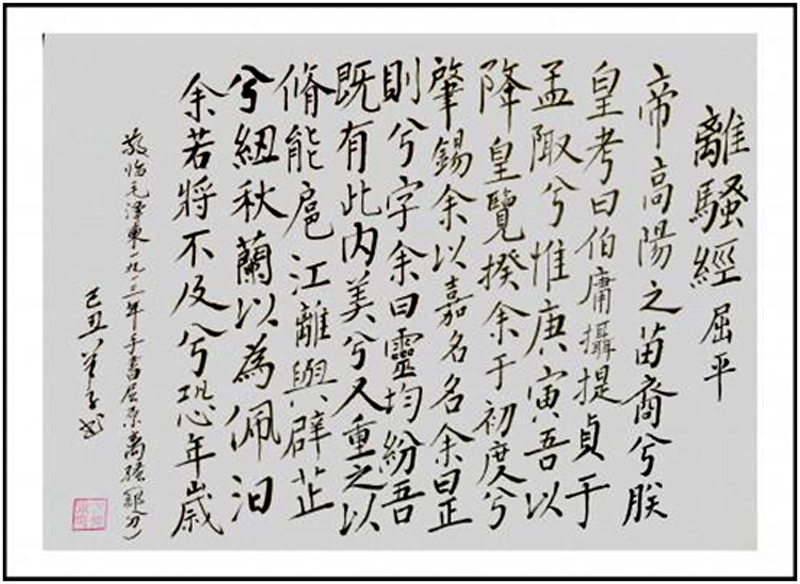 離騷經 屈平
帝高陽之苗裔兮朕
皇考曰伯庸攝提貞于
孟陬兮惟庚寅吾以
降皇覽揆余于初度兮
肇錫余以嘉名名余曰正
則兮字余曰靈均紛吾
既有此内美兮又重之以
脩能扈江離與辟芷
兮紉秋蘭以為佩汩
余若將不及兮恐年歲
敬临毛泽東一九一三年手書屈原离騷
己丑